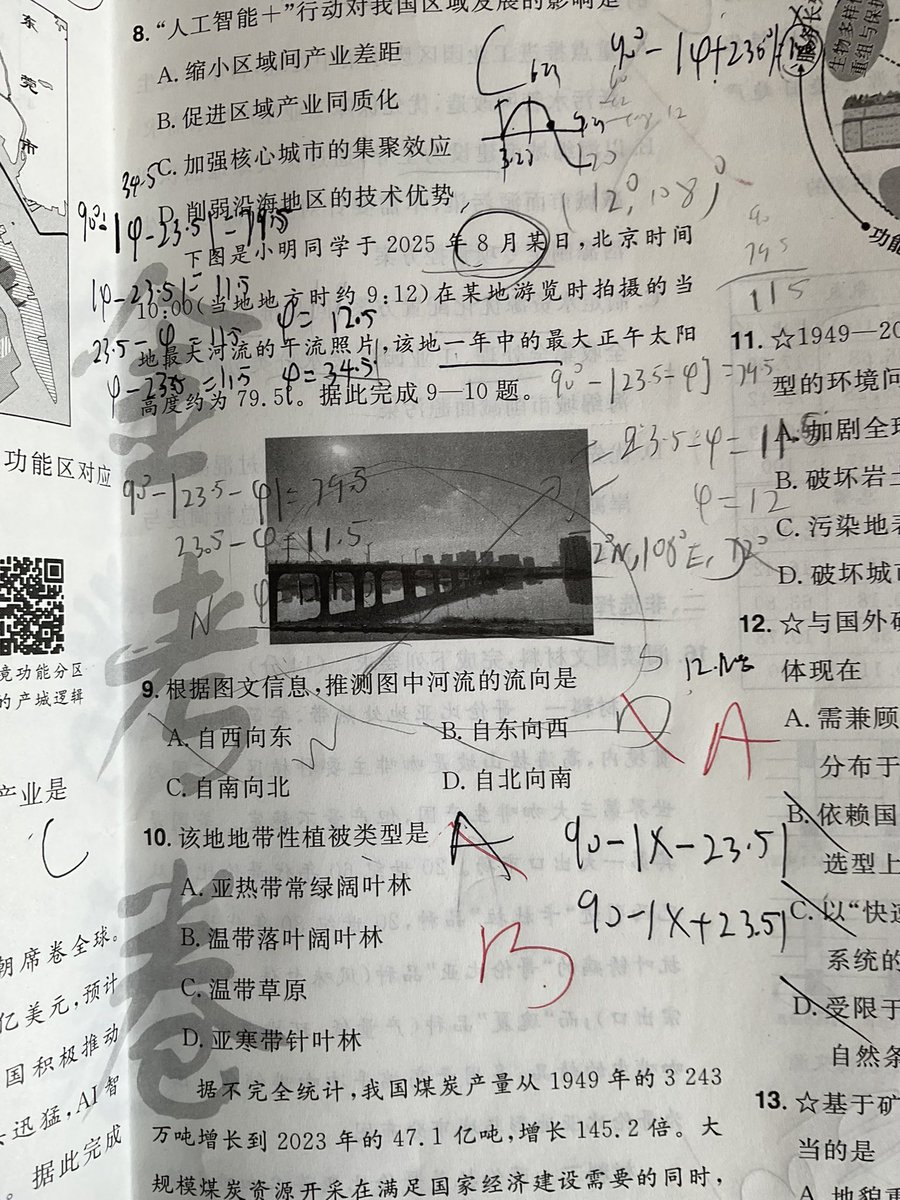 8. “人工智能＋”行动对我国区域发展的影响是
A. 缩小区域间产业差距
B. 促进区域产业同质化
C. 加强核心城市的集聚效应
D. 削弱沿海地区的技术优势
下图是小明同学于 2025 年 8 月某日，北京时间
10:00(当地地方时约 9:12)在某地游览时拍摄的当
地最大河流的干流照片，该地一年中的最大正午太阳
高度约为 79.5°。据此完成 9—10 题。
34.5
90°-|φ-23.5|=79.5
|φ-23.5|=11.5
23.5-φ=11.5 φ=12.5
φ-23.5=11.5 φ=34.5
(12°,108°)
90
79.5
11.5
90°-|23.5-φ|=79.5
23.5-φ=11.5
φ=12
90-|23.5-φ|=79.5
23.5-φ=11.5
N
9. 根据图文信息，推测图中河流的流向是
A. 自西向东
B. 自东向西
C. 自南向北
D. 自北向南
D A
10. 该地地带性植被类型是
A
A. 亚热带常绿阔叶林
B. 温带落叶阔叶林
C. 温带草原
D. 亚寒带针叶林
B
90-|x-23.5|
90-|x+23.5|
据不完全统计，我国煤炭产量从 1949 年的 3 243
万吨增长到 2023 年的 47.1 亿吨，增长 145.2 倍。大
规模煤炭资源开采在满足国家经济建设需要的同时，
全
考
卷
东
莞
市
功能区对应
境功能分区
的产城逻辑
产业是
C
朝席卷全球。
亿美元，预计
国积极推动
迅猛，AI 智
据此完成
生物多样性
重组与保护
功能
11. ☆1949—20
型的环境问
A. 加剧全球
B. 破坏岩土
C. 污染地表
D. 破坏城市
12. ☆与国外
体现在
A. 需兼顾
分布于
B. 依赖国
选型上
C. 以“快速
系统的
D. 受限于
自然条
13. ☆基于矿
当的是
A. 地貌重